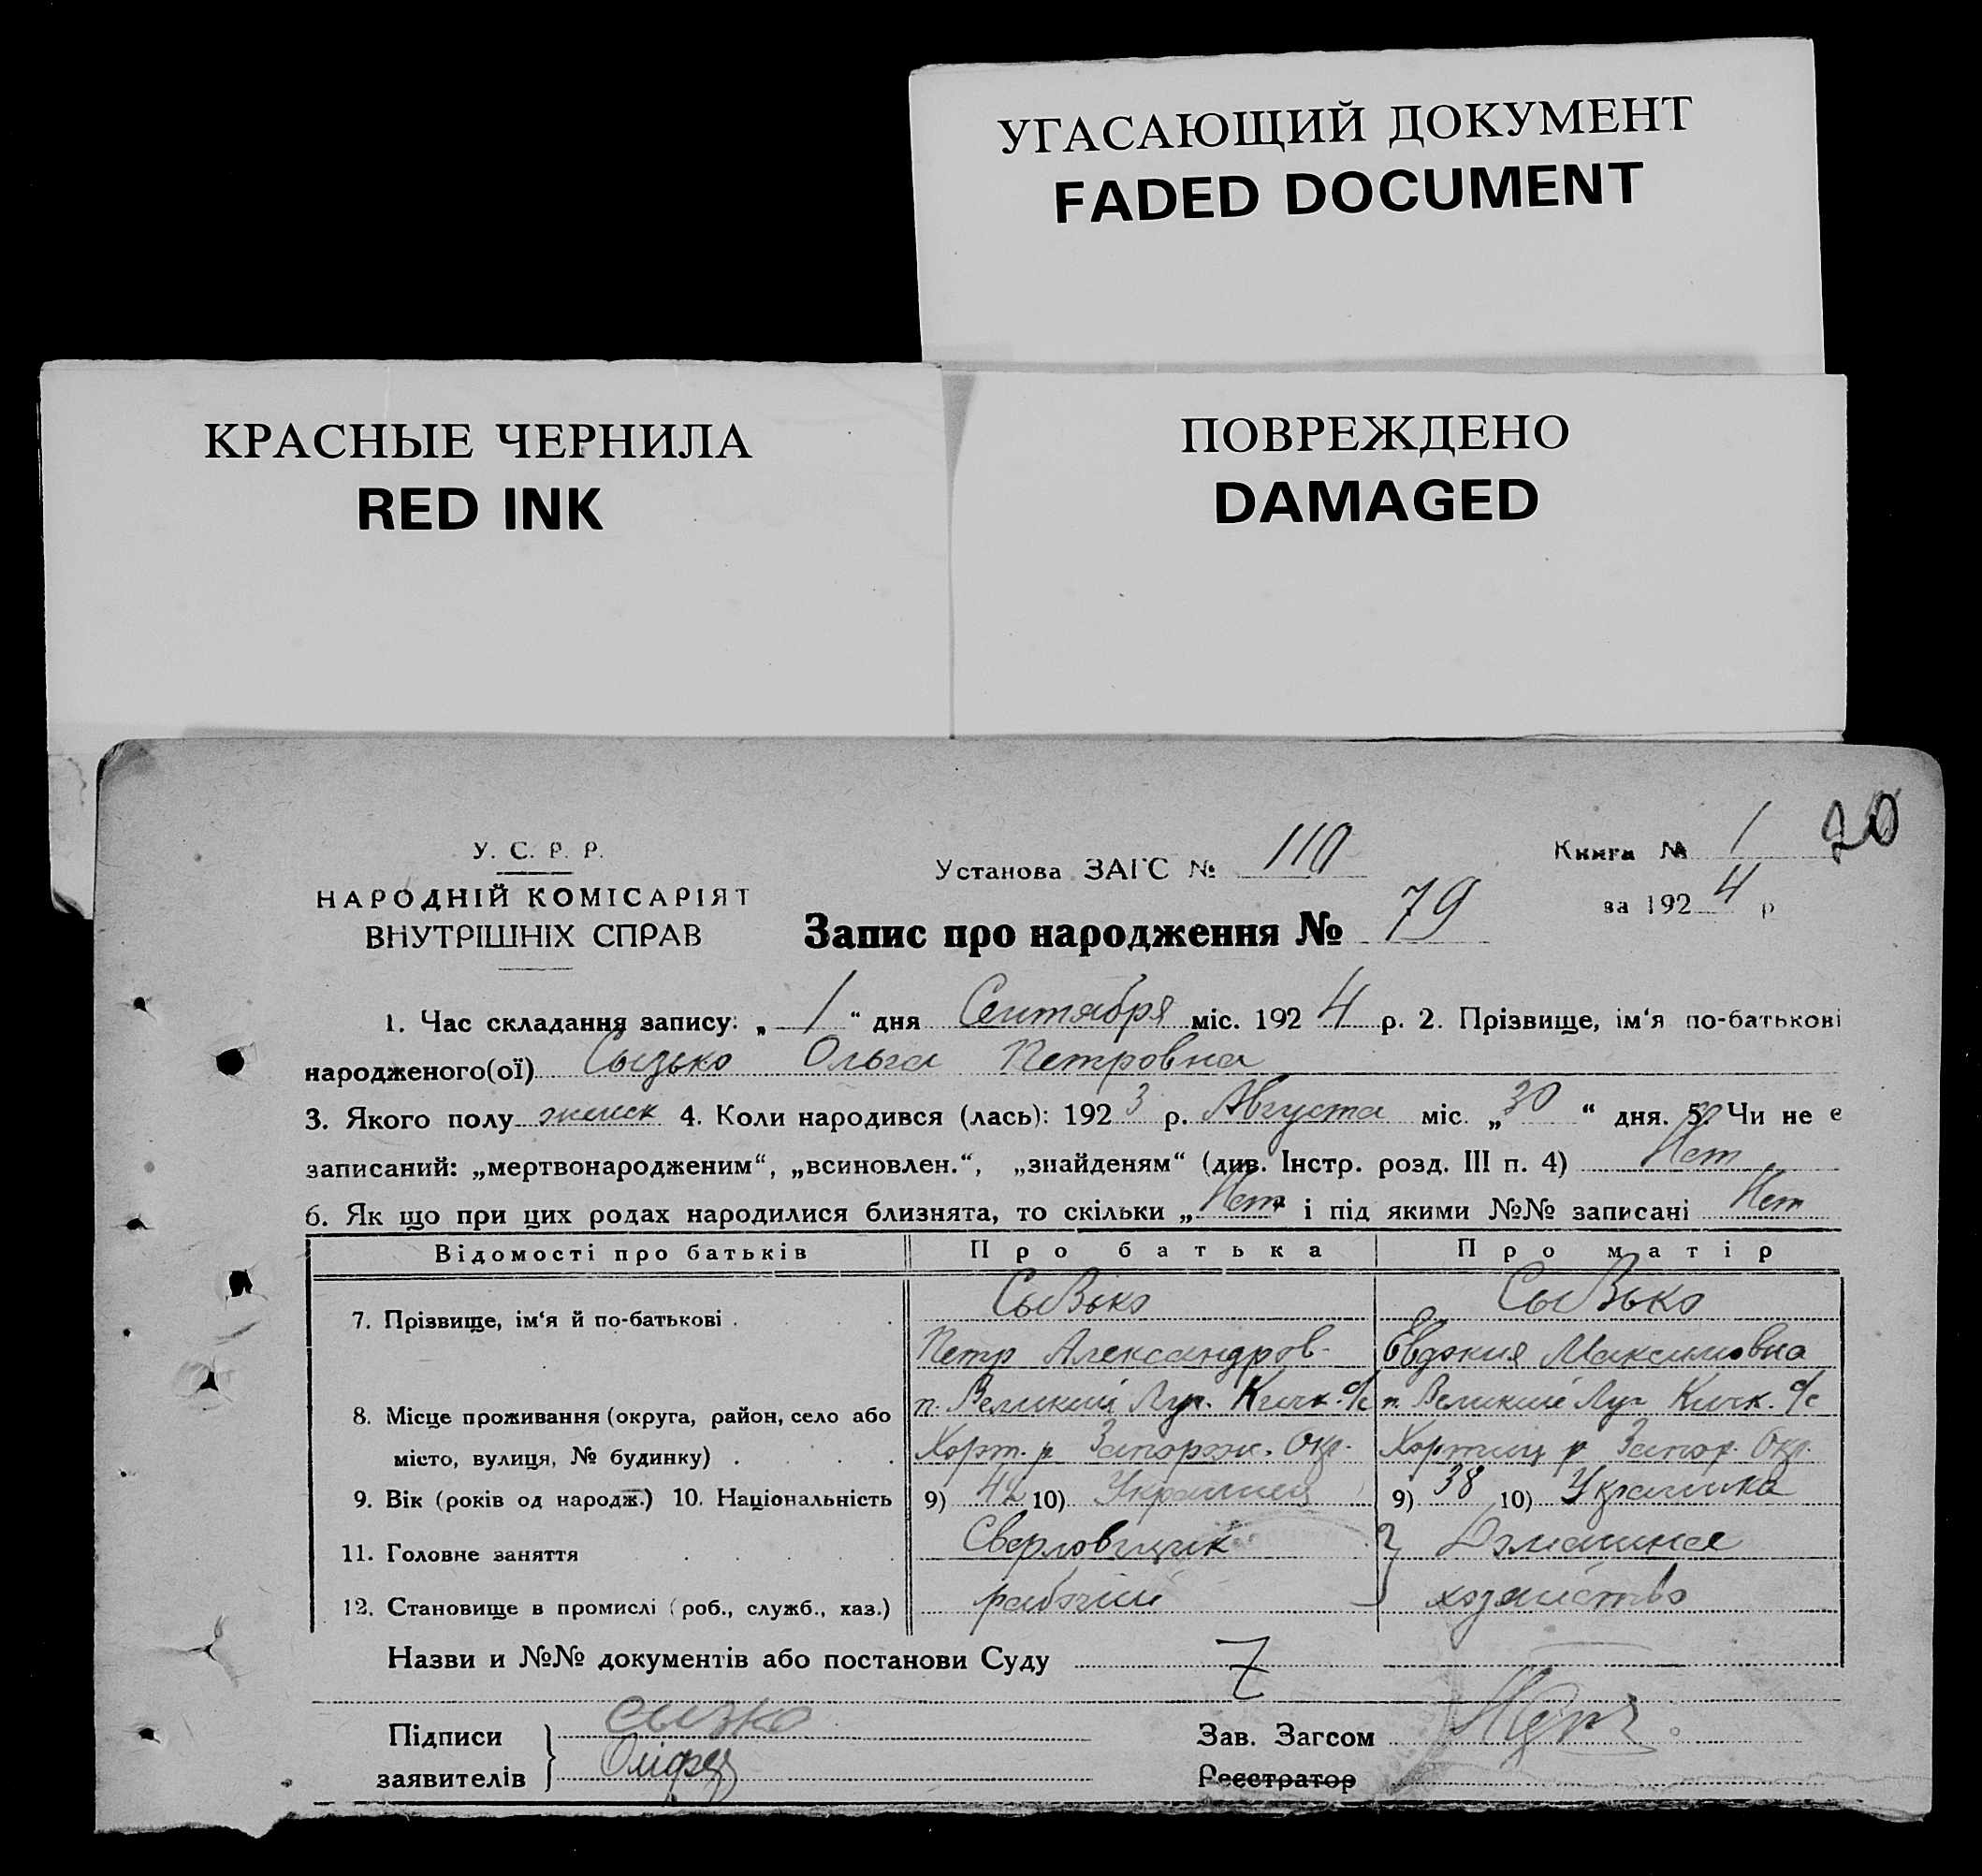 УГАСАЮЩИЙ ДОКУМЕНТ
FADED DOCUMENT
КРАСНЫЕ ЧЕРНИЛА
RED INK
ПОВРЕЖДЕНО
DAMAGED
20
У. С. Р. Р.
НАРОДНІЙ КОМІСАРІЯТ
ВНУТРІШНІХ СПРАВ
Установа ЗАГС № 110
Книга № 1
за 1924 р
Запис про народження № 79
1. Час складання запису: „ 1 “ дня Сентября міс. 1924 р. 2. Прізвище, ім‘я по-батькові
народженого(ої) Сызько Ольга Петровна
3. Якого полу женск 4. Коли народився (лась): 1923 р. Августа міс. „30“ дня. 5. Чи не є
записаний: „мертвонародженим“, „всиновлен.“, „знайденям“ (див. Інстр. розд. III п. 4) Нет
6. Як що при цих родах народилися близнята, то скільки „Нет“ і під якими №№ записані Нет
Відомості про батьків Про батька Про матір
7. Прізвище, ім‘я й по-батькові . Сызько Сызько
Петр Александров- Евдокия Максимовна
8. Місце проживання (округа, район, село або п. Великий Луг. Кичк. с/с п. Великий Луг Кичк. с/с
місто, вулиця, № будинку) . Хорт. р Запорож. Окр. Хортиц р Запор. Окр.
9. Вік (років од народж.) 10. Національність 9) 42 10) Украинец 9) 38 10) Украинка
11. Головне заняття Сверловщик Домашнее
12. Становище в промислі (роб., служб., хаз.) рабочий хозяйство
Назви и №№ документів або постанови Суду
Підписи Сызко
заявителів
Зав. Загсом
Реєстратор